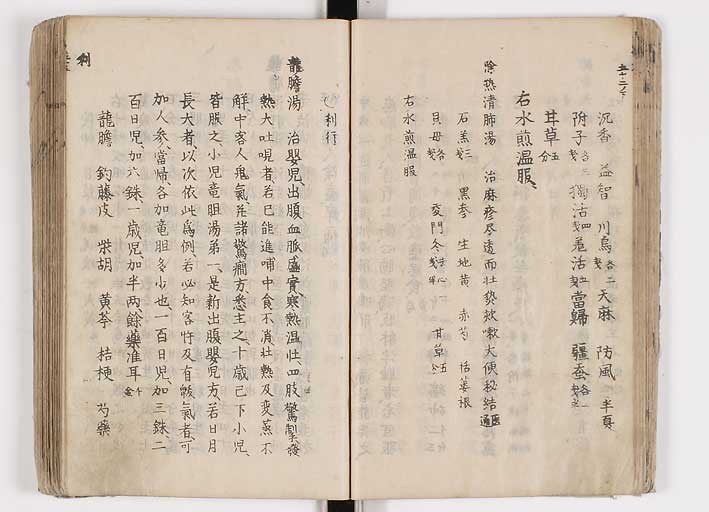 沉香 益智 川烏各二戔 天麻 防風一半夏
附子各三戔 獨活四戔 羌活五戔 當歸 殭蚕各一戔
甘草五分
右水煎温服、
除热清肺湯 治麻疹尽透而壮热欬嗽大便秘結
石羔三 黒参 生地黄 赤芍 括蒌根
貝母各戔 麦門冬 甘草五分
右水煎温服
利行
龍膽湯 治嬰児、出腹血脈盛實、寒熱温壮、四肢驚掣、發
熱大吐哯者、若已能進哺中食不消壮熱及変蒸不
解中客人鬼氣、并諸驚癇方、悉主之、十歳已下小児、
皆服之、小児竜胆湯第一、是新出腹嬰児方、若日月
長大者、以次依此為例、若必知客忤及有魃氣者、可
加人参、當帰、各如竜胆多少也、一百日児、加三銖、二
百日児、加六銖、一歳児、加半両、餘藥准耳
龍膽 釣藤皮 柴胡 黄芩 桔梗 芍藥
利